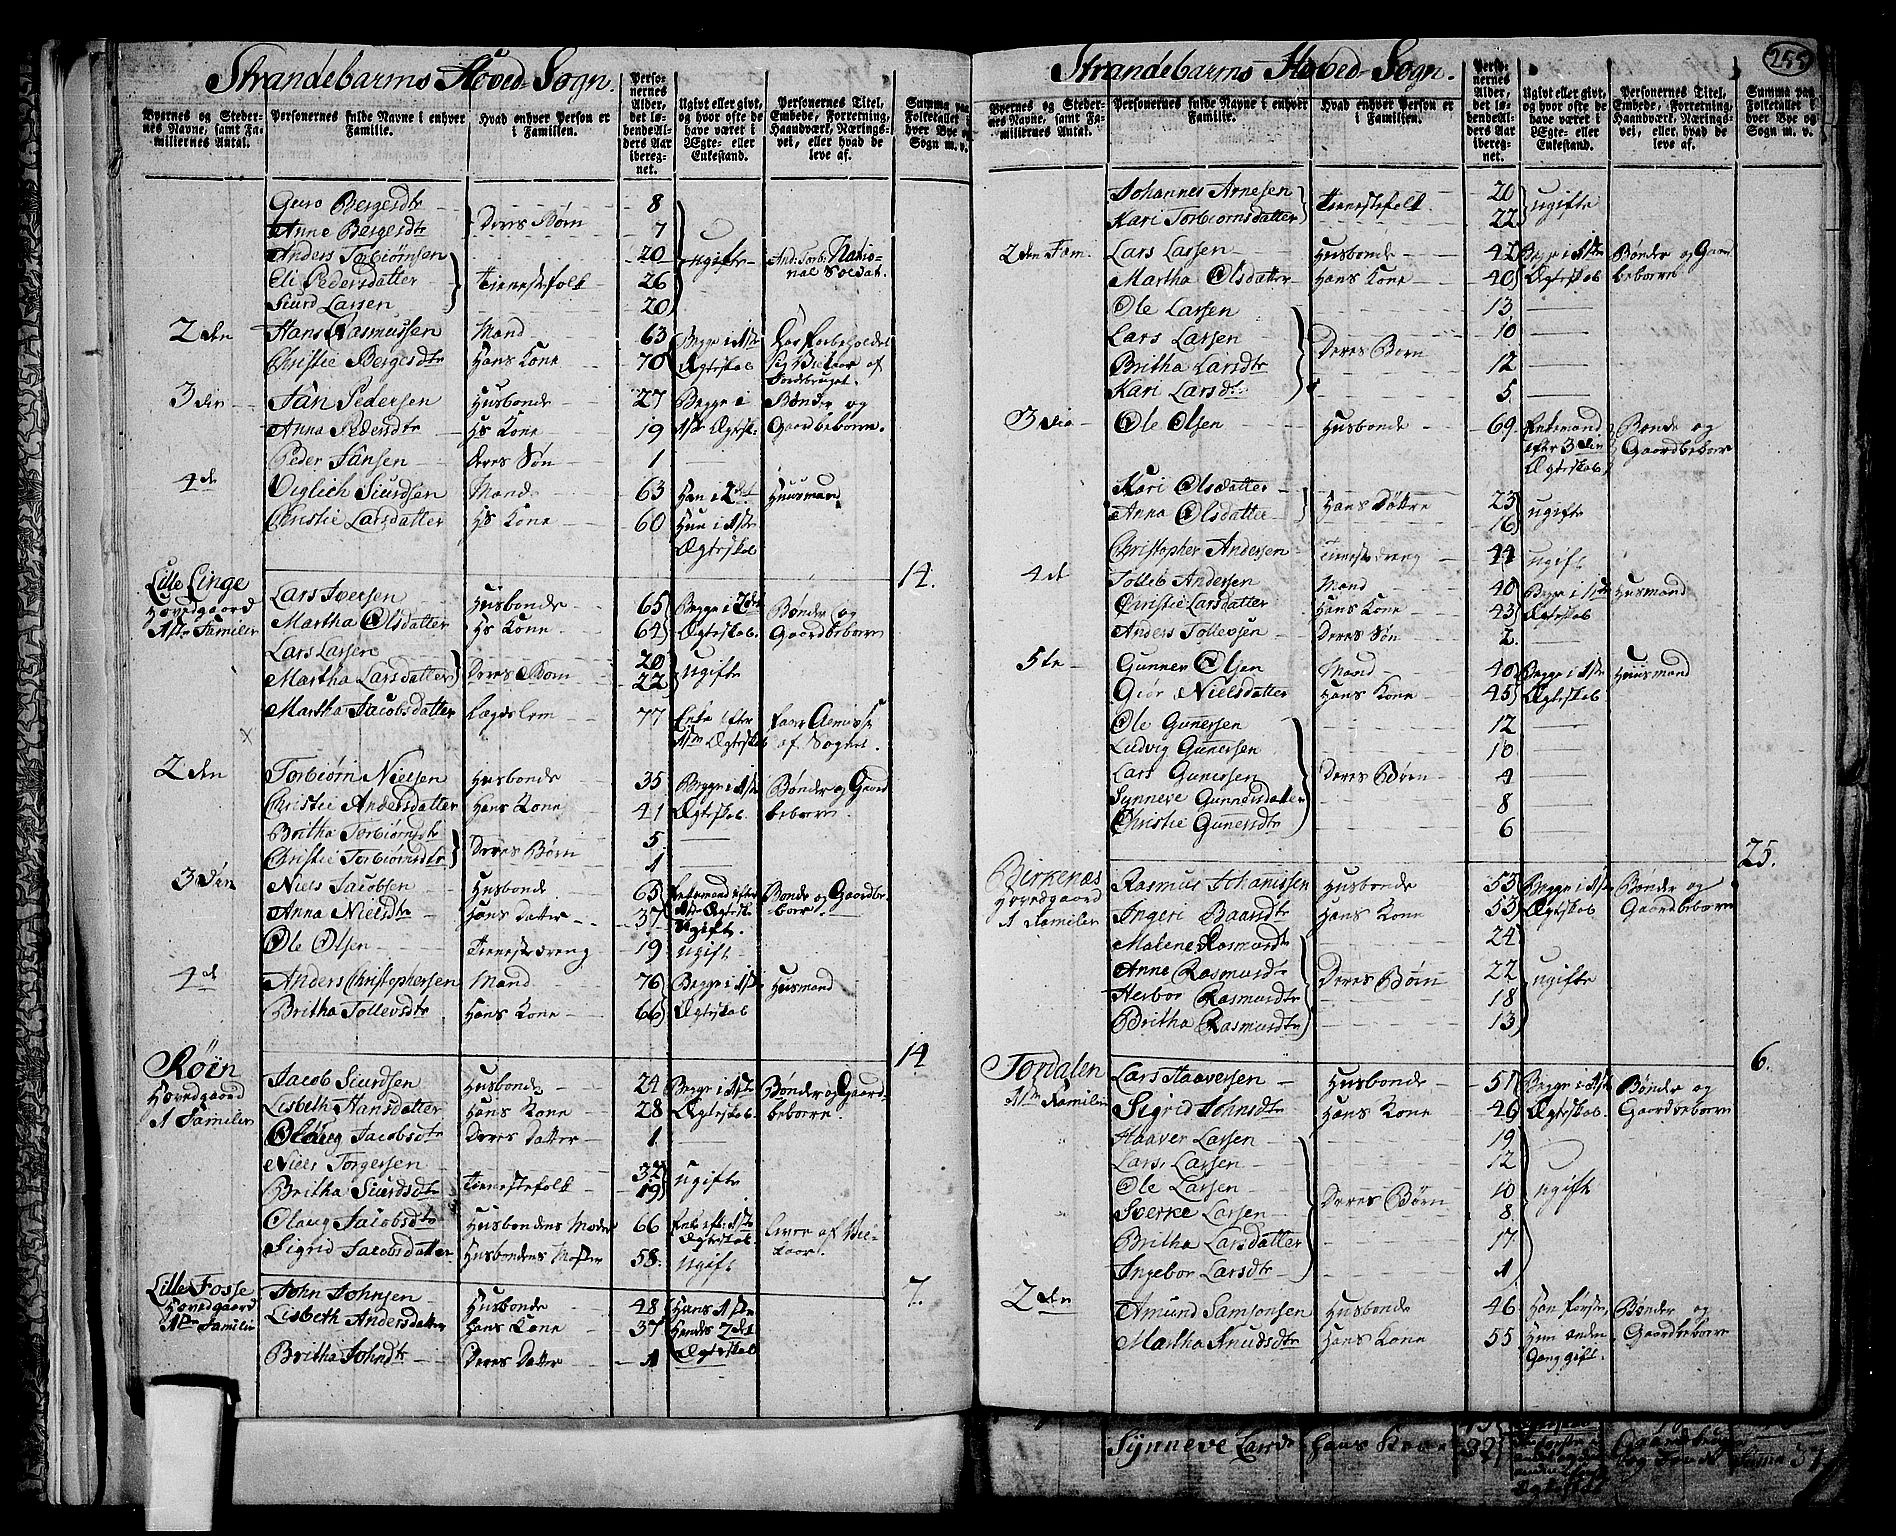 Strandebarms Hoved-Sogn.
Byernes og Stedernes Navne, samt Familiernes Antal.
Personernes fulde Navne i enhver Familie.
Hvad enhver Person er i Familien.
Personernes Alder, det løbende Alders Aar iberegnet.
Ugivt eller givt, og hvor ofte de have været i Ægte- eller Enkestand.
Personernes Titel, Embede, Forretning, Haandværk, Næringsvei, eller hvad de leve af.
Summa paa Folketallet i hver Bye og Sogn m. v.
Guro Bergesdtr 8
Anne Bergesdtr Deres Børn 7
Anders Torbiørnsen 20 ugifte And: Torb: Natio-
Eli Pedersdatter Tienestefolk 26 nal Soldat.
Siurd Larsen 20
2den Hans Rasmussen Mand 63 Begge i 1ste Har forbeholdet
Christie Bergesdtr Hans Kone 70 Ægteskab sig Vilkaar af
Jordebruget.
3die Jan Pedersen Husbonde 27 Begge i Bønder og
Anna Pedersdtr Hs Kone 19 1ste Ægtesk: Gaardbeboere.
Peder Jansen Deres Søn 1
4de Viglich Siurdsen Mand 63 Han i 2det Huusmand
Christie Larsdatter Hs Kone 60 Hun i 1ste
Ægteskab
14.
Lille Linge
Hovedgaard Lars Iversen Husbonde 65 Begge i 2det Bønder og
1ste Familie Martha Olsdatter Hs Kone 64 Ægteskab. Gaardbeboere
Lars Larsen 20
Martha Larsdatter Deres Børn 22 ugifte
Martha Jacobsdatter Lægdslem 77 Enke efter faaer Almisse
1ste Ægteskab af Sognet.
2den Torbiørn Nielsen Husbonde 35 Begge i 1ste Bønder og Gaard
Christie Andersdatter Hans Kone 41 Ægteskab. beboere.
Britha Torbiørnsdtr 5
Christie Torbiørnsdtr Deres Børn 1
3die Niels Jacobsen Husbonde 65 Enkemand efter Bonde og Gaardbe-
Anna Nielsdtr Hans datter 37 1ste Ægtesk: beboer.
Ugift.
Ole Olsen Tienestedreng 19 ugift
4de Anders Christophersen Mand 76 Begge i 1ste Husmand
Britha Tollevsdtr Hans Kone 66 Ægteskab
14.
Røin Jacob Siurdsen Husbonde 24 Begge i 1ste Bønder og Gaard-
Hovedgaard Lisbeth Hansdatter Hans Kone 28 Ægteskab beboere
1 Familie Olaug Jacobsdtr Deres Datter 1
Niels Torgersen 32
Britha Siurdsdtr Tienestefolk 19 ugifte
Olaug Jacobsdtr Husbondens Moder 66 Enke eft: 1ste lever af Vil-
Ægteskab kaar.
Sigrid Jacobsdatter Husbondens Moster 58. ugift
7.
Lille Fosse John Johnsen Husbonde 48 Hans 1ste
Hovedgaard Lisbeth Andersdatter hans Kone 37 Hendes 2det
1ste Familie Ægteskab
Britha Johndtr Deres Datter 1
255
Strandebarms Hoved-Sogn.
Byernes og Stedernes Navne, samt Familiernes Antal.
Personernes fulde Navne i enhver Familie.
Hvad enhver Person er i Familien.
Personernes Alder, det løbende Alders Aar iberegnet.
Ugivt eller givt, og hvor ofte de have været i Ægte- eller Enkestand.
Personernes Titel, Embede, Forretning, Haandværk, Næringsvei, eller hvad de leve af.
Summa paa Folketallet i hver Bye og Sogn m. v.
Johannes Arnesen Tienestefolk. 20 ugifte
Kari Torbiørnsdatter 22
2den Fam. Lars Larsen Husbonde 42 Begge i 1ste Bønder og Gaard
Martha Olsdatter Hans Kone 40 Ægteskab beboere
Ole Larsen 13
Lars Larsen 10
Britha Larsdtr Deres Børn 12
Kari Larsdtr 5
3die Ole Olsen Husbonde 69 Enkemand Bonde og
efter 3die Gaardbeboer
Ægteskab
Kari Olsdatter 23
Anna Olsdatter Hans Døttre 16 ugifte
Christopher Andersen Tienestedreng 44 ugift
4de Tolleb Andersen Mand 40 Begge i 1ste Husmand
Christie Larsdatter Hans Kone 43 Ægteskab
Anders Tollevsen Deres Søn 2
5te Gunner Olsen Mand 40 Begge i 1ste Huusmand
Giør Nielsdatter Hans Kone 45 Ægteskab
Ole Gunersen 12
Ludvig Gunersen 10
Lars Gunersen Deres Børn 4
Synneve Gunnersdatter 8
Christie Gunersdtr 6
25.
Birkenæs Rasmus Johannissen Husbonde 53 Begge i 1ste Bønder og
Hovedgaard Ingeri Baardtr Hans Kone 53 Ægteskab Gaardbeboere
1 Familie Malene Rasmusdtr 24
Anne Rasmusdtr Deres Børn 22 ugifte
Herbor Rasmusdtr 18
Britha Rasmusdtr 13
6.
Tordalen Lars Haaversen Husbonde 51 Begge i 1ste Bønder og
1ste Familie Sigrid Johnsdtr Hans Kone 46 Ægteskab. Gaardbeboere
Haaver Larsen 19
Lars Larsen 12
Ole Larsen Deres Børn 10 ugifte
Sverke Larsen 8
Britha Larsdatter 17
Ingebor Larsdtr 1
2den Amund Samsonsen Husbonde 46 Han første, Bønder og
Martha Knudsdtr Hans Kone 55 Hun anden Gaardbeboere
Gang gift.
Synneve Larsd hans Kone 32